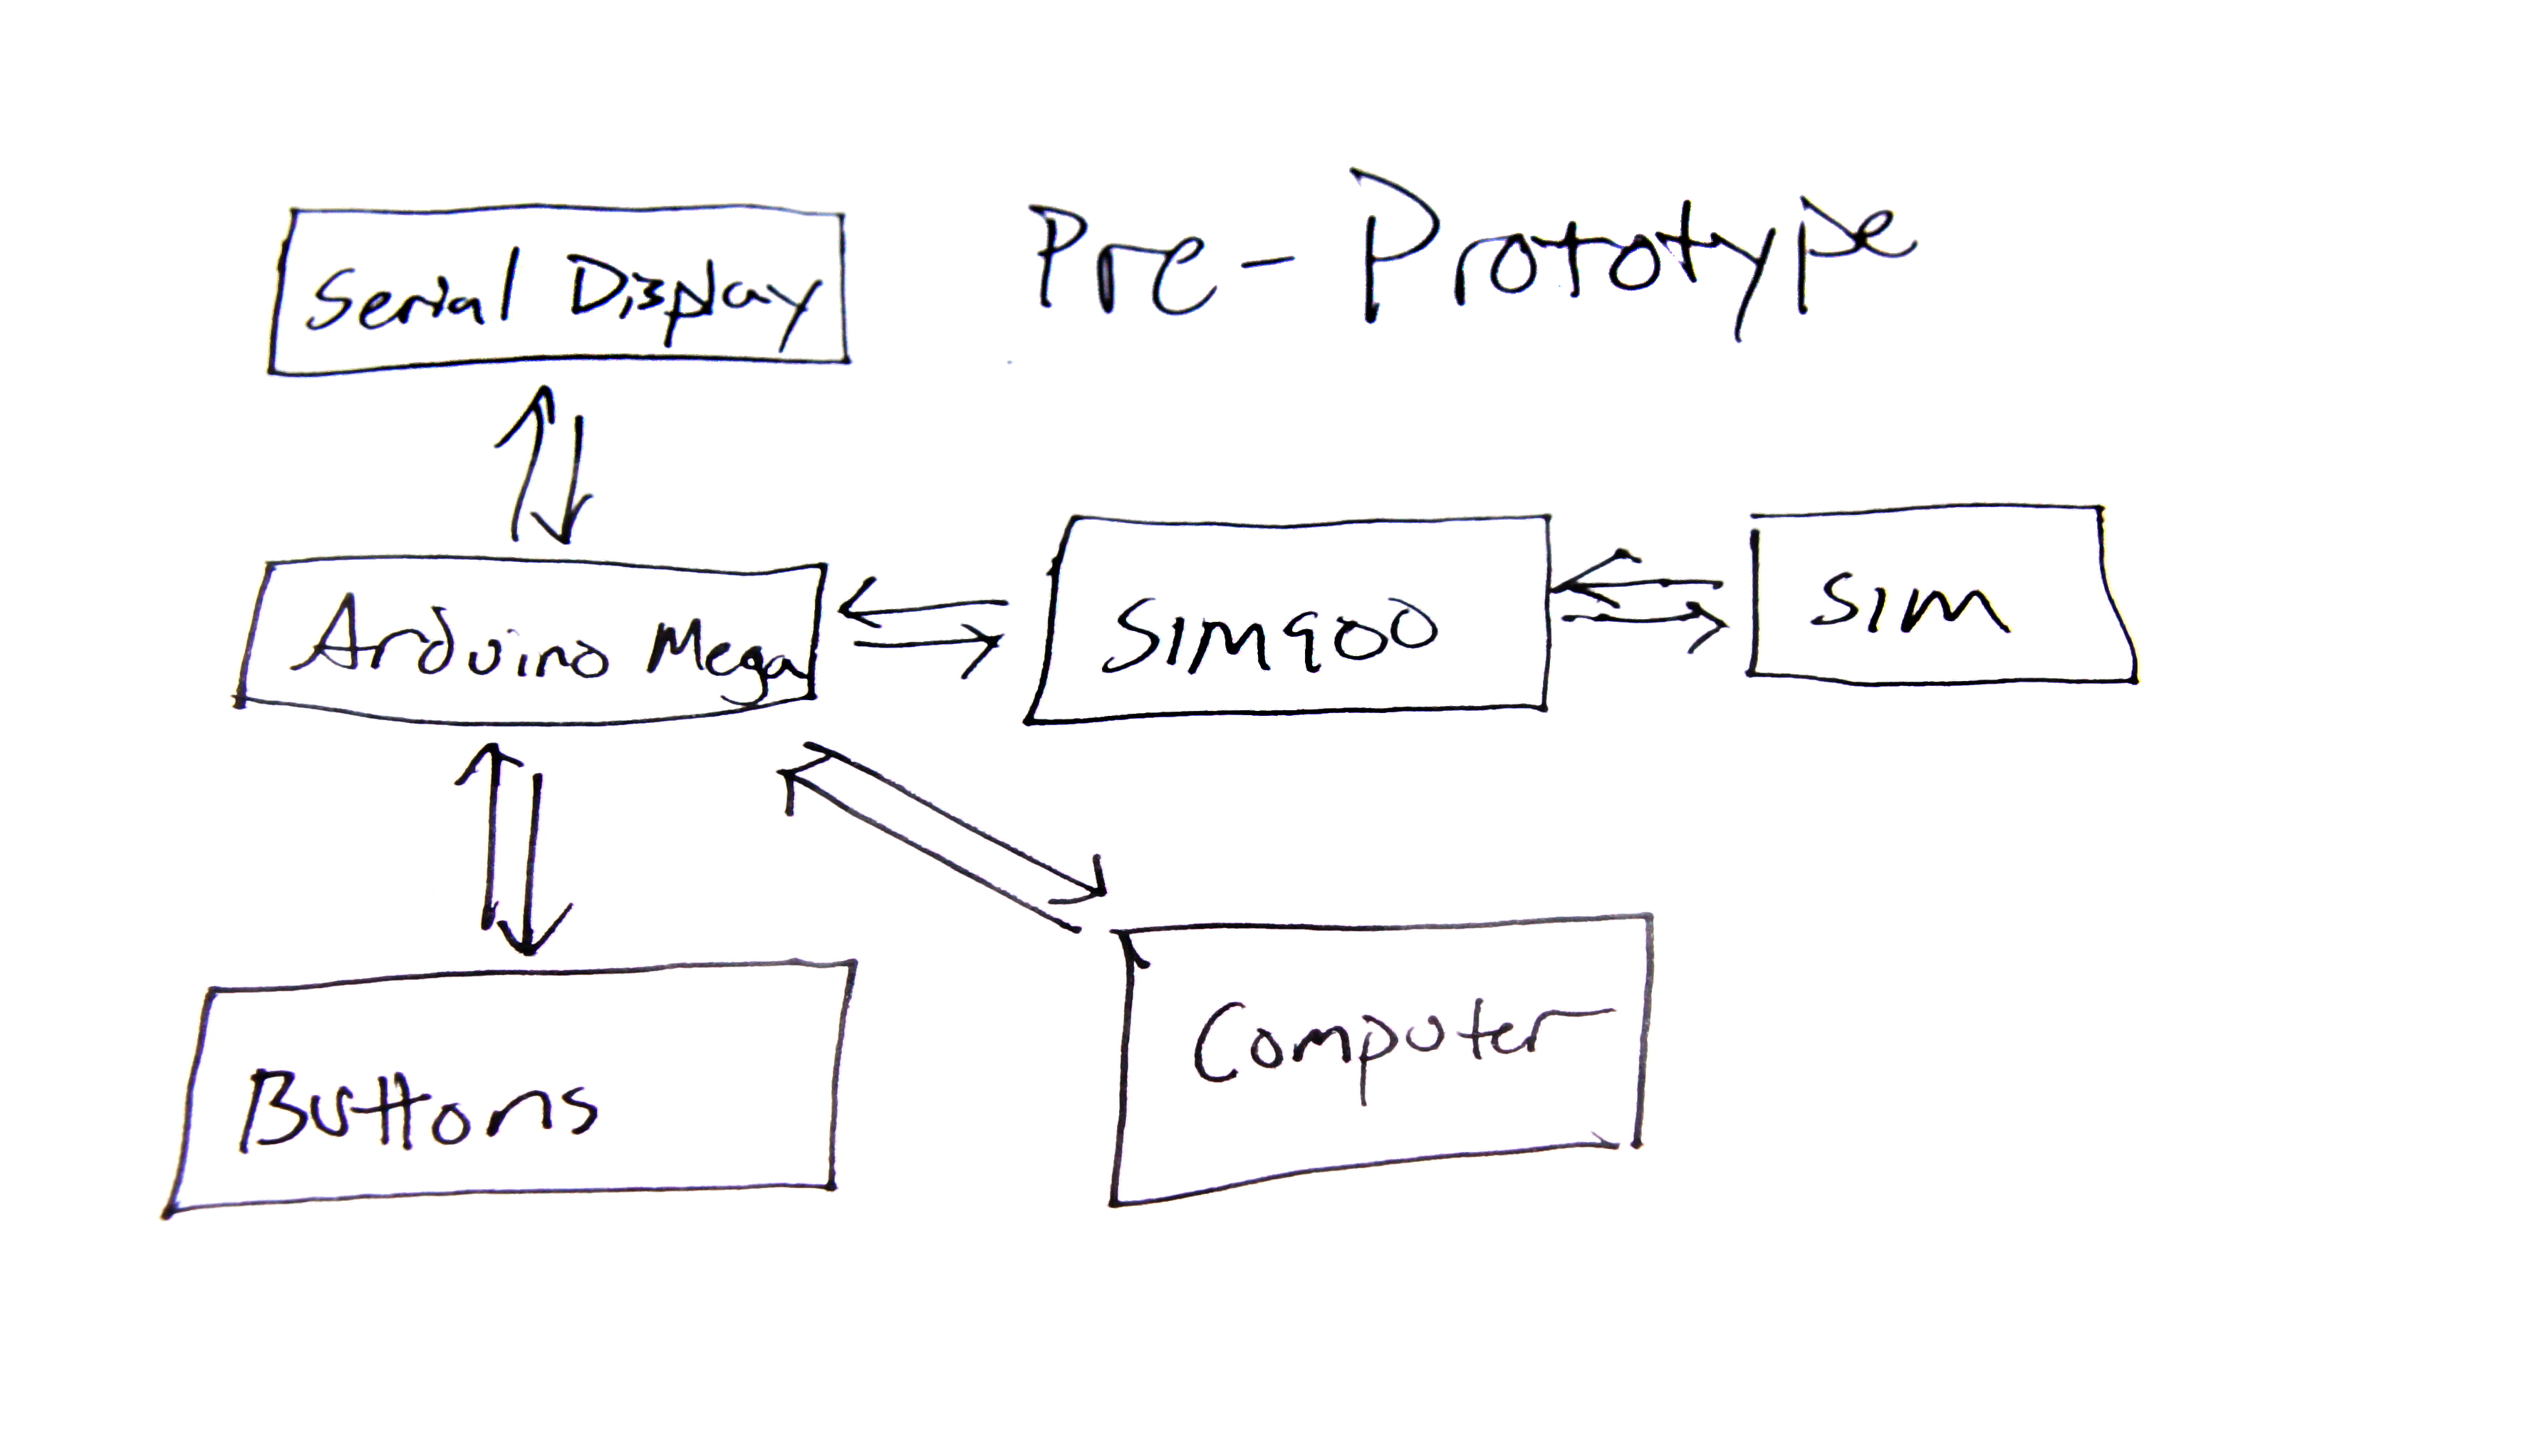 Pre-Prototype
Serial Display
Arduino Mega
SIM900
SIM
Buttons
Computer